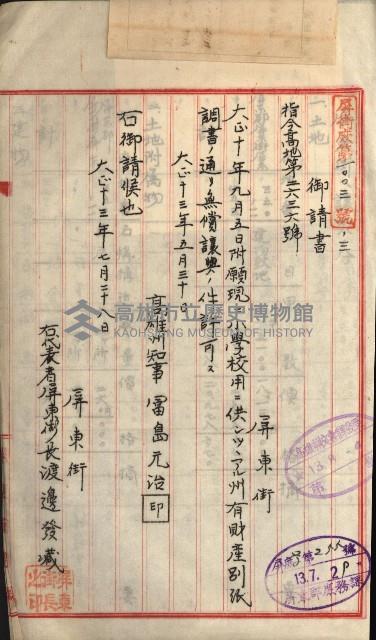 屏街庶第一〇〇三號ノ三
御請書
指令高地第二六三六號
屏東街
大正十年九月五日附願現ニ小學校用ニ供シツヽアル州有財產別紙
調書ノ通リ無償讓與ノ件許可ス
大正十三年五月三十日
高雄州知事 富島元治 印
右御請候也
大正十三年七月二十八日
屏東街
右代表者屏東街長渡邊發藏
屏東街長之印
13.7.29
高雄市立歷史博物館
KAOHSIUNG MUSEUM OF HISTORY